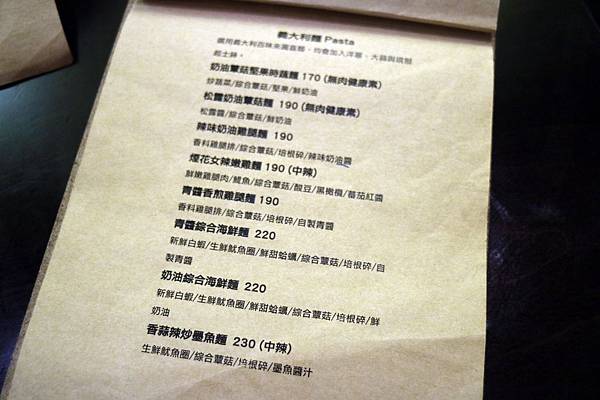 義大利麵 Pasta
選用義大利百味來圓直麵，均會加入洋蔥、大蒜與現刨
起士絲。
奶油蕈菇堅果時蔬麵 170 (無肉健康素)
炒蔬菜/綜合蕈菇/堅果/鮮奶油
松露奶油蕈菇麵 190 (無肉健康素)
松露醬/綜合蕈菇/鮮奶油
辣味奶油雞腿麵 190
香料雞腿排/綜合蕈菇/培根碎/辣味奶油醬
煙花女辣嫩雞麵 190 (中辣)
鮮嫩雞腿肉/鯷魚/綜合蕈菇/酸豆/黑橄欖/蕃茄紅醬
青醬香煎雞腿麵 190
香料雞腿排/綜合蕈菇/培根碎/自製青醬
青醬綜合海鮮麵 220
新鮮白蝦/生鮮魷魚圈/鮮甜蛤蠣/綜合蕈菇/培根碎/自
製青醬
奶油綜合海鮮麵 220
新鮮白蝦/生鮮魷魚圈/鮮甜蛤蠣/綜合蕈菇/培根碎/鮮
奶油
香蒜辣炒墨魚麵 230 (中辣)
生鮮魷魚圈/綜合蕈菇/培根碎/墨魚醬汁